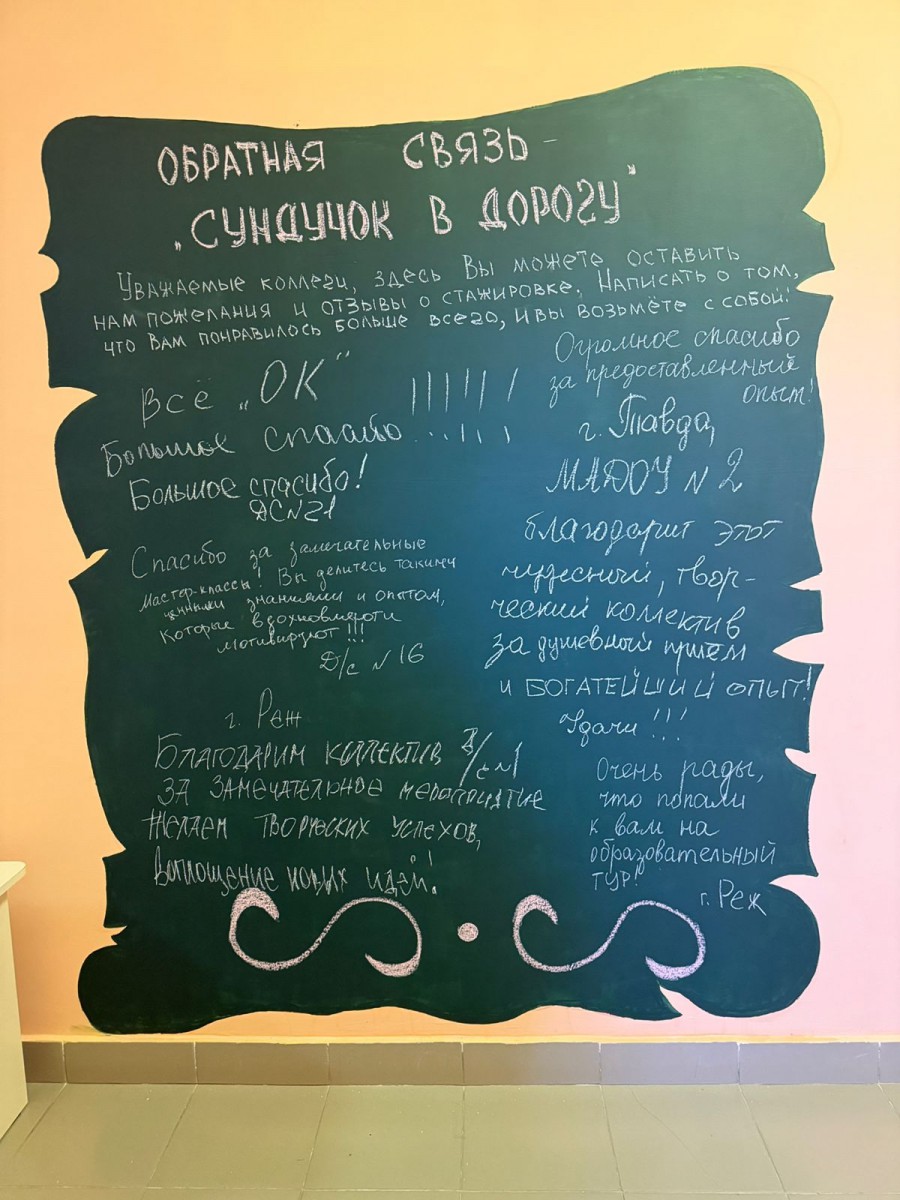 ОБРАТНАЯ СВЯЗЬ -
„СУНДУЧОК В ДОРОГУ"
Уважаемые коллеги, здесь Вы можете оставить
нам пожелания и отзывы о стажировке. Написать о том,
что Вам понравилось больше всего, и вы возьмёте с собой!
Всё „ОК" !!!!!!
Большое спасибо...!!!
Большое спасибо!
ДС№21
Спасибо за замечательные
мастер-классы! Вы делитесь такими
ценными знаниями и опытом,
которые вдохновляют и
мотивируют!!!
Д/с №16
г. Реж
Благодарим коллектив Д/с №1
за замечательное мероприятие
Желаем творческих успехов,
воплощение новых идей!
Огромное спасибо
за предоставленный
опыт!
г. Тавда,
МАДОУ №2
благодарит этот
чудесный, твор-
ческий коллектив
за душевный приём
и БОГАТЕЙШИЙ ОПЫТ!
Удачи!!!
Очень рады,
что попали
к вам на
образовательный
тур!
г. Реж